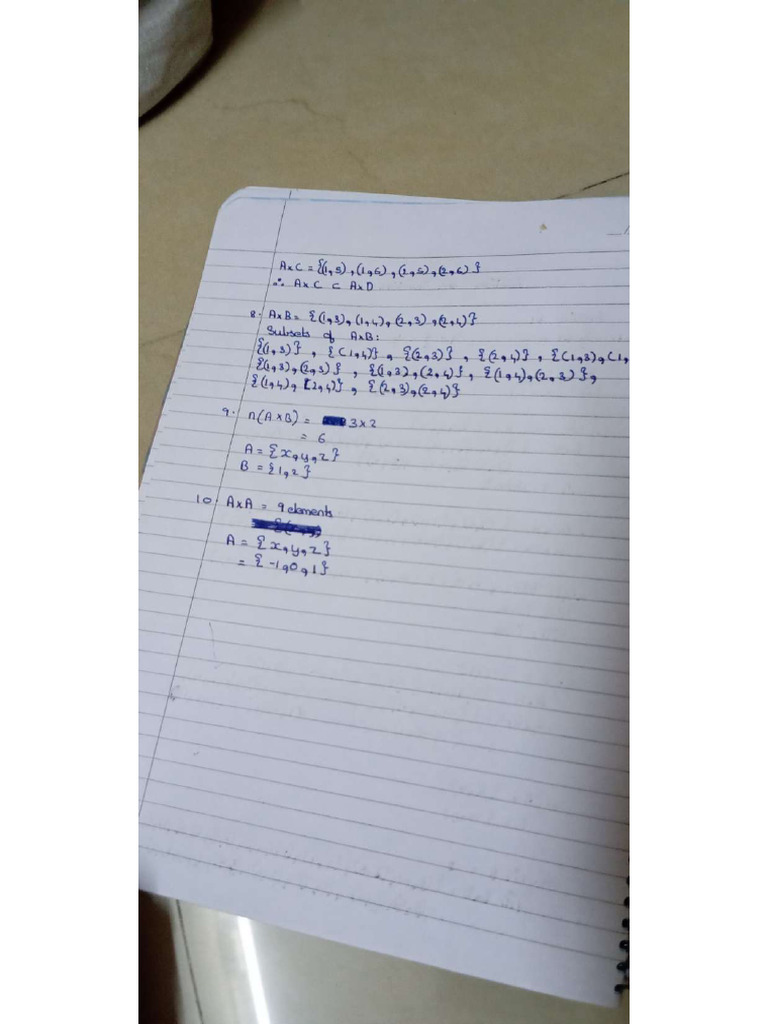 A×C = {(1,5),(1,6),(2,5),(2,6)}
∴ A×C ⊂ A×D
8. A×B = {(1,3),(1,4),(2,3),(2,4)}
Subsets of A×B:
{(1,3)}, {(1,4)}, {(2,3)}, {(2,4)}, {(1,3),(1,
{(1,3),(2,3)}, {(1,3),(2,4)}, {(1,4),(2,3)},
{(1,4),(2,4)}, {(2,3),(2,4)}
9. n(A×B) = 3×2
= 6
A = {x,y,z}
B = {1,2}
10. A×A = 9 elements
A = {x,y,z}
= {-1,0,1}